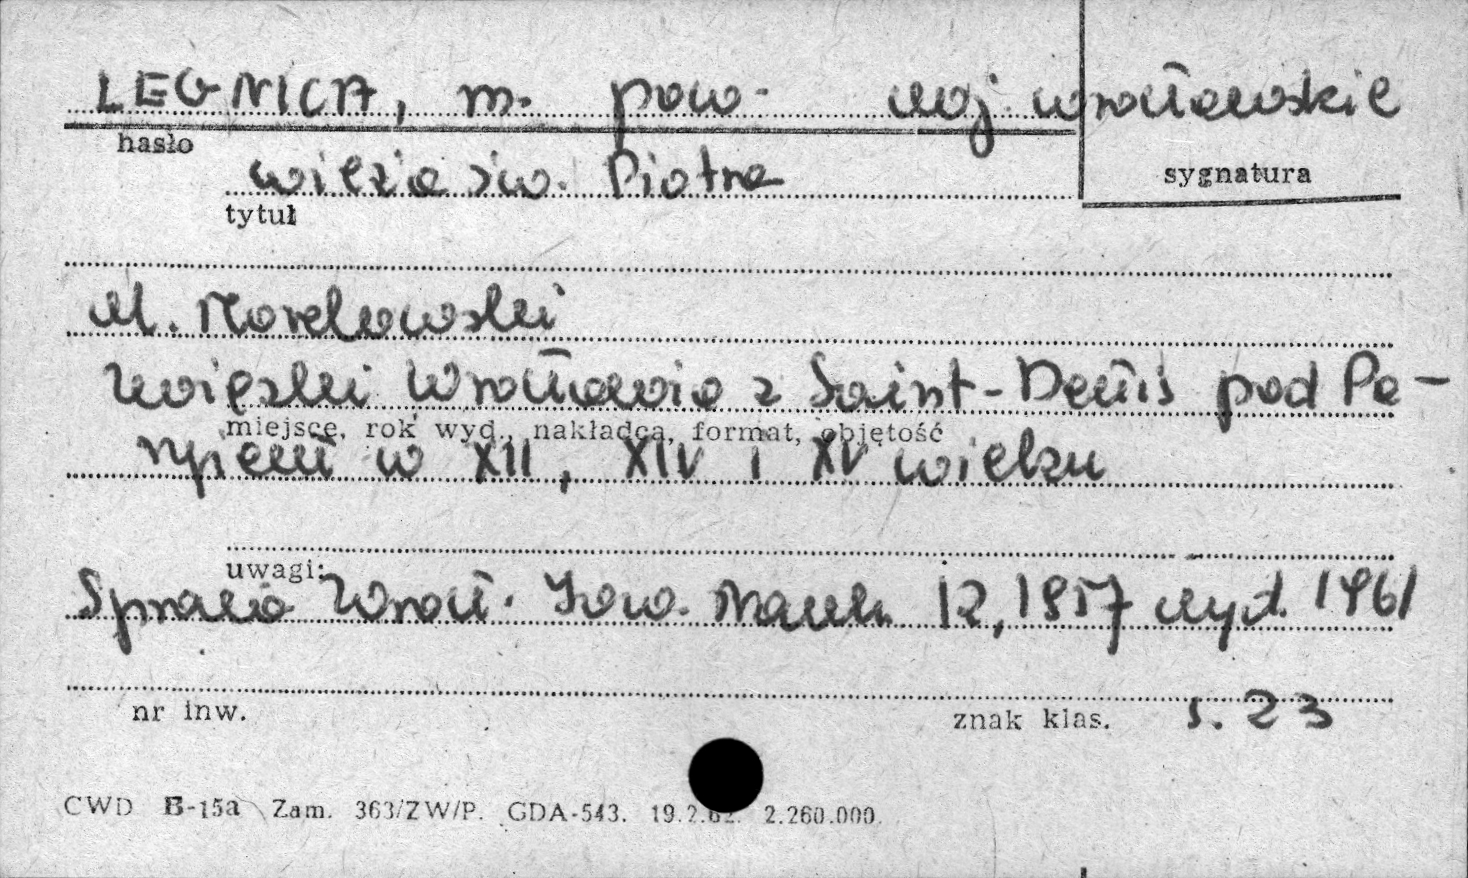 LEGNICA, m. pow. woj. wrocławskie
hasło
wieża św. Piotra
sygnatura
tytuł
M. Morelowski
Związki Wrocławia z Saint-Denis pod Pa-
miejsce, rok wyd., nakładca, format, objętość
ryżem w XII, XIV i XV wieku
uwagi:
Sprawo Wrocł. Tow. Nauk. 12, 1957 wyd. 1961
nr inw.
znak klas. s. 23
CWD B-15a Zam. 363/ZW/P. GDA-543. 19.2.62. 2.260.000.